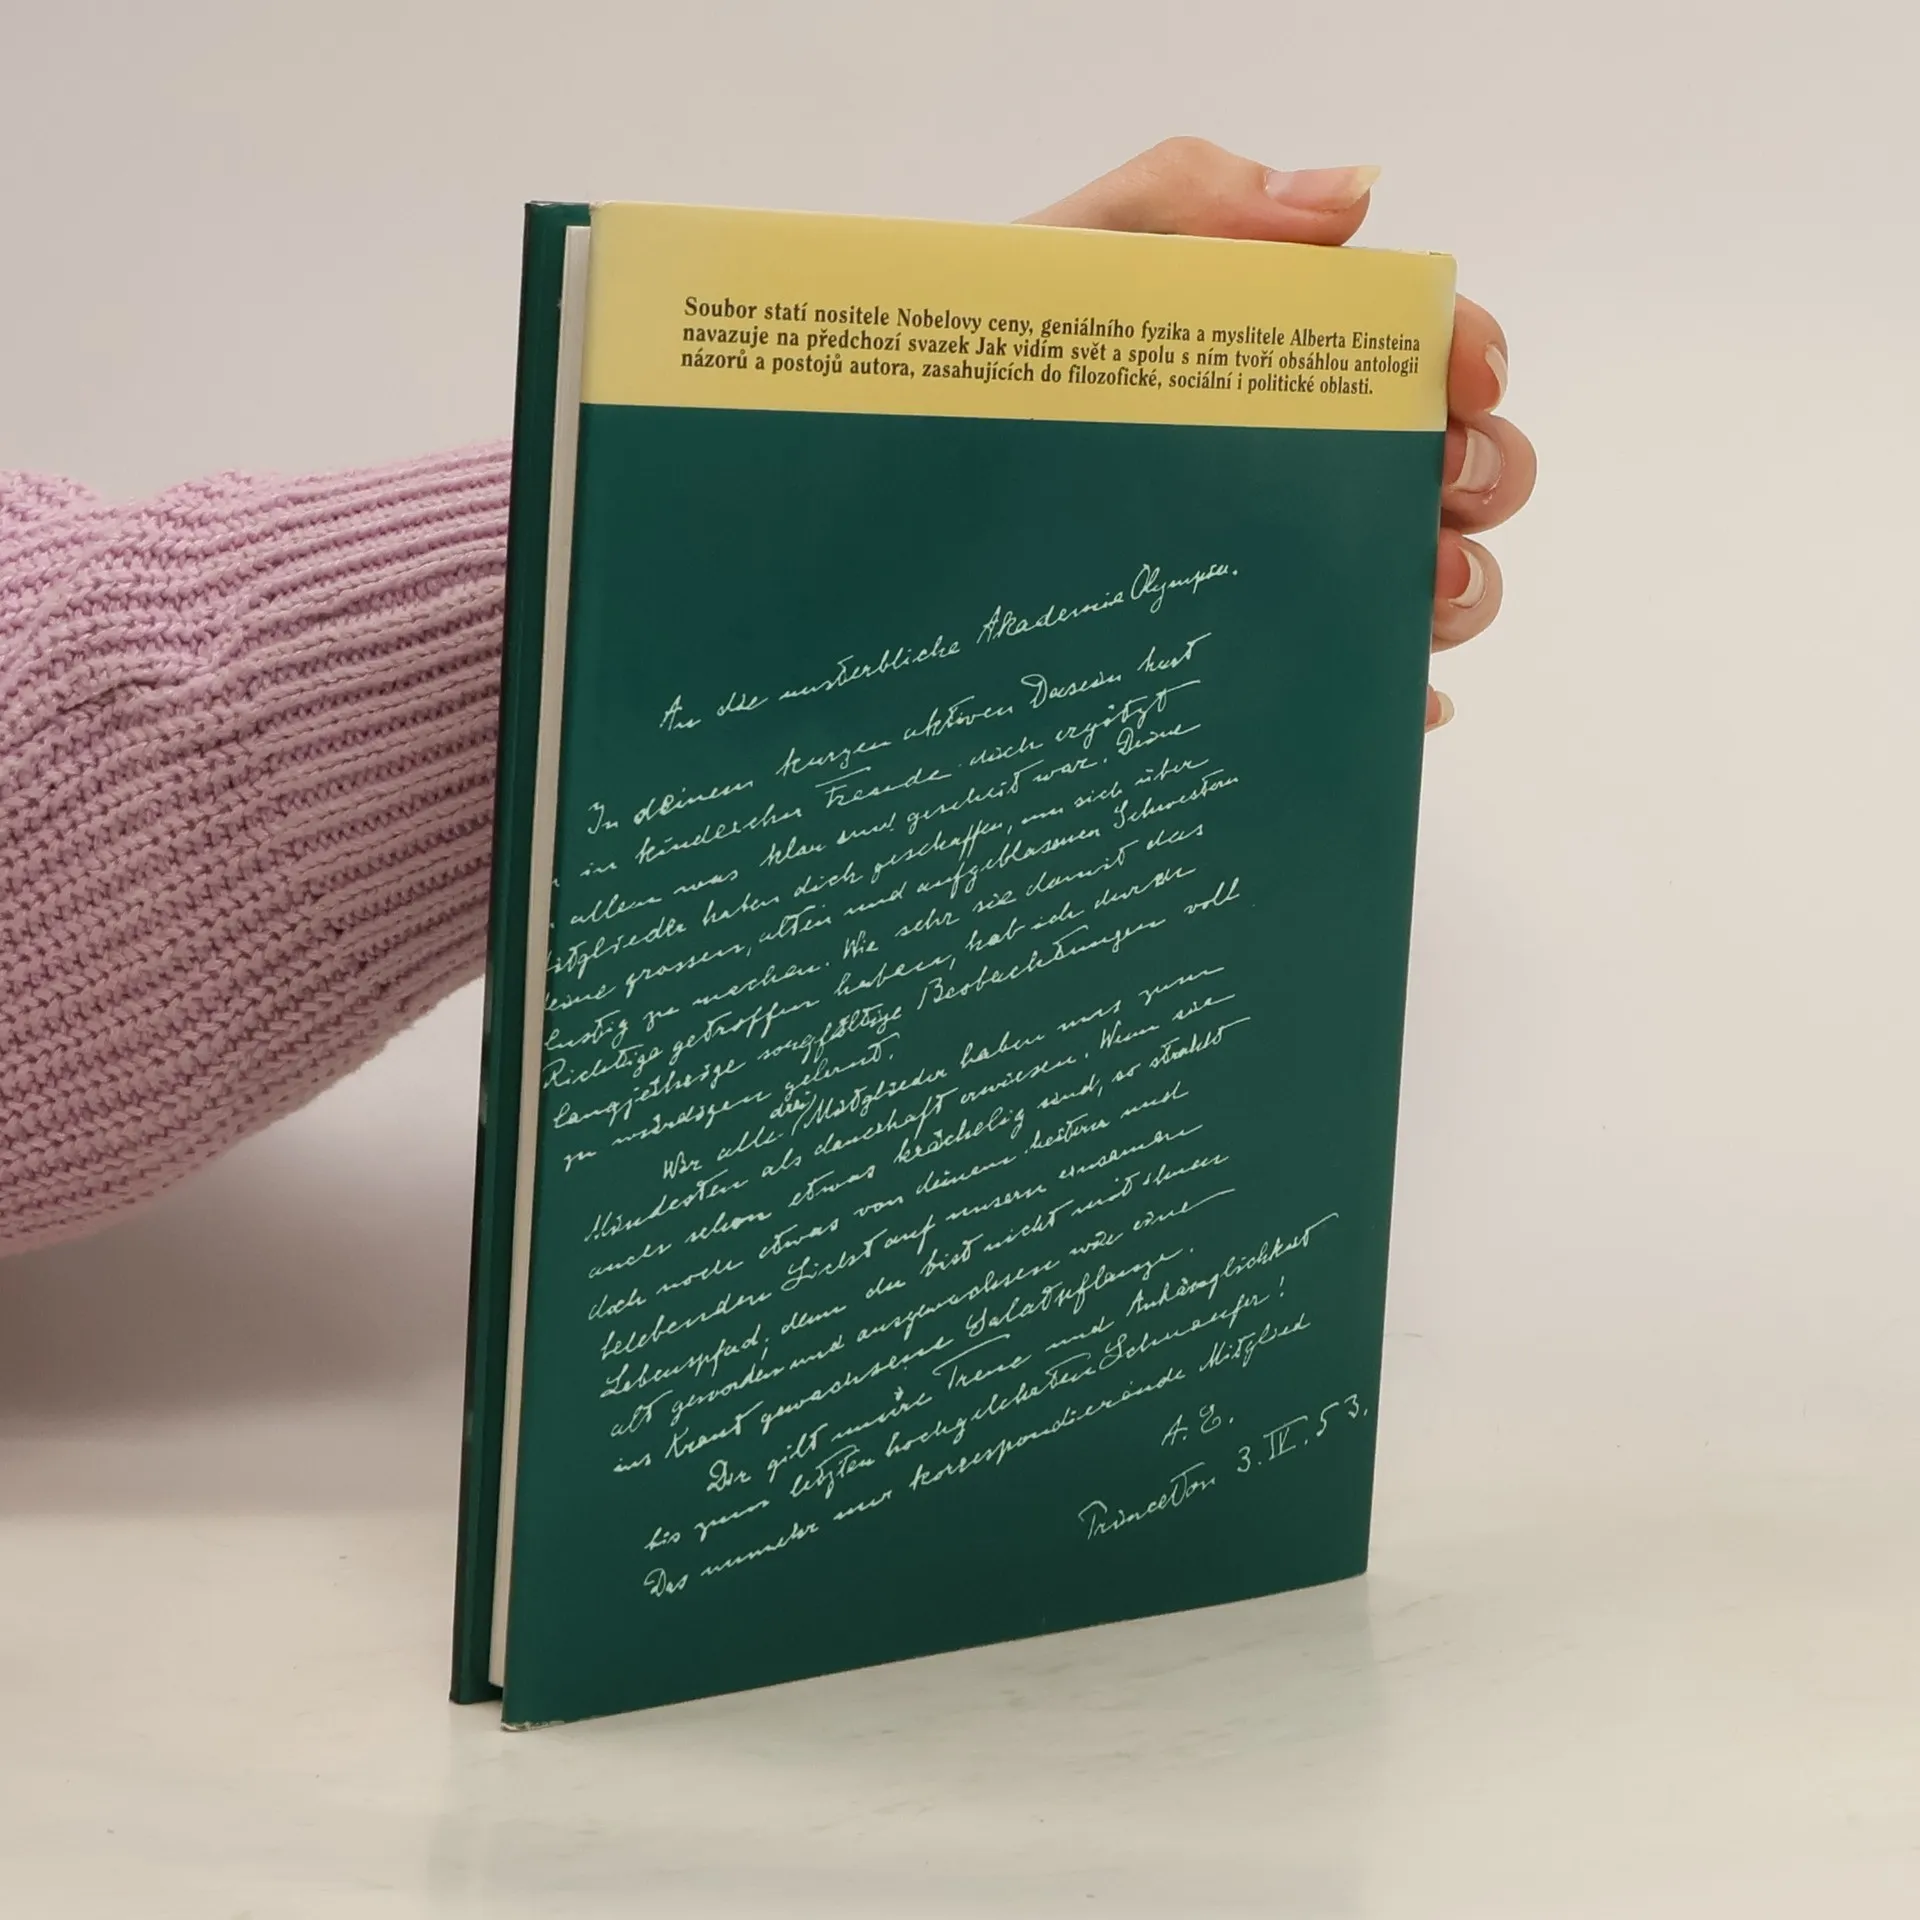 Soubor statí nositele Nobelovy ceny, geniálního fyzika a myslitele Alberta Einsteina
navazuje na předchozí svazek Jak vidím svět a spolu s ním tvoří obsáhlou antologii
názorů a postojů autora, zasahujících do filozofické, sociální i politické oblasti.
An die unsterbliche Akademie Olympia.
In deinem kurzen aktiven Dasein hast
in kindischer Freude dich ergötzt
allem was klar und gescheit war. Deine
Mitglieder haben dich geschaffen, um sich über
deine grossen, alten und aufgeblasenen Schwestern
lustig zu machen. Wie sehr sie damit das
Richtige getroffen haben, hab ich durch
langjährige sorgfältige Beobachtungen voll
zu würdigen gelernt.
Wir alle drei Mitglieder haben uns zum
Mindesten als dauerhaft erwiesen. Wenn sie
auch schon etwas krächelig sind, so strahlt
doch noch etwas von deinem heitern und
belebenden Licht auf unsern einsamen
Lebenspfad; denn du bist nicht mit ihnen
alt geworden und ausgewachsen wie eine
ins Kraut gewachsene Salatpflanze.
Dir gilt unsere Treue und Anhänglichkeit
bis zum letzten hochgelehrten Schnaufer!
Das nunmehr nur korrespondierende Mitglied
A. E.
Princeton 3. IV. 53.